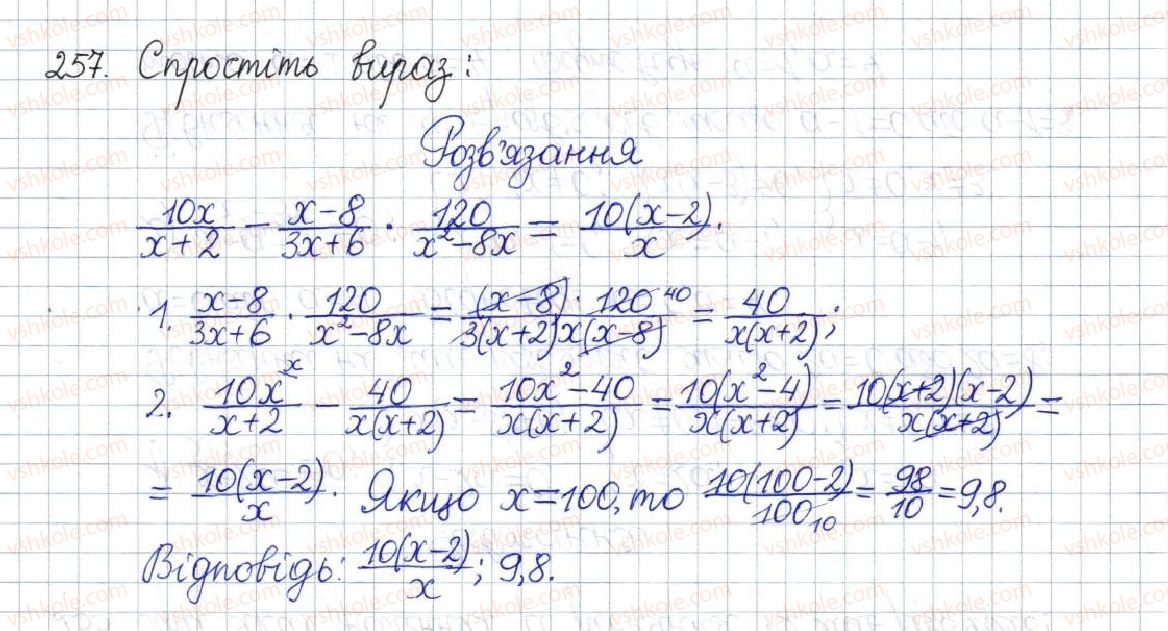 257. Спростіть вираз:
Розв'язання
10x/(x+2) − (x−8)/(3x+6) · 120/(x²−8x) = 10(x−2)/x.
1. (x−8)/(3x+6) · 120/(x²−8x) = (x−8)·120 40/3(x+2)x(x−8) = 40/x(x+2);
2. 10x x/(x+2) − 40/x(x+2) = (10x²−40)/x(x+2) = 10(x²−4)/x(x+2) = 10(x+2)(x−2)/x(x+2) =
= 10(x−2)/x. Якщо x=100, то 10(100−2)/100 10 = 98/10 = 9,8.
Відповідь: 10(x−2)/x; 9,8.